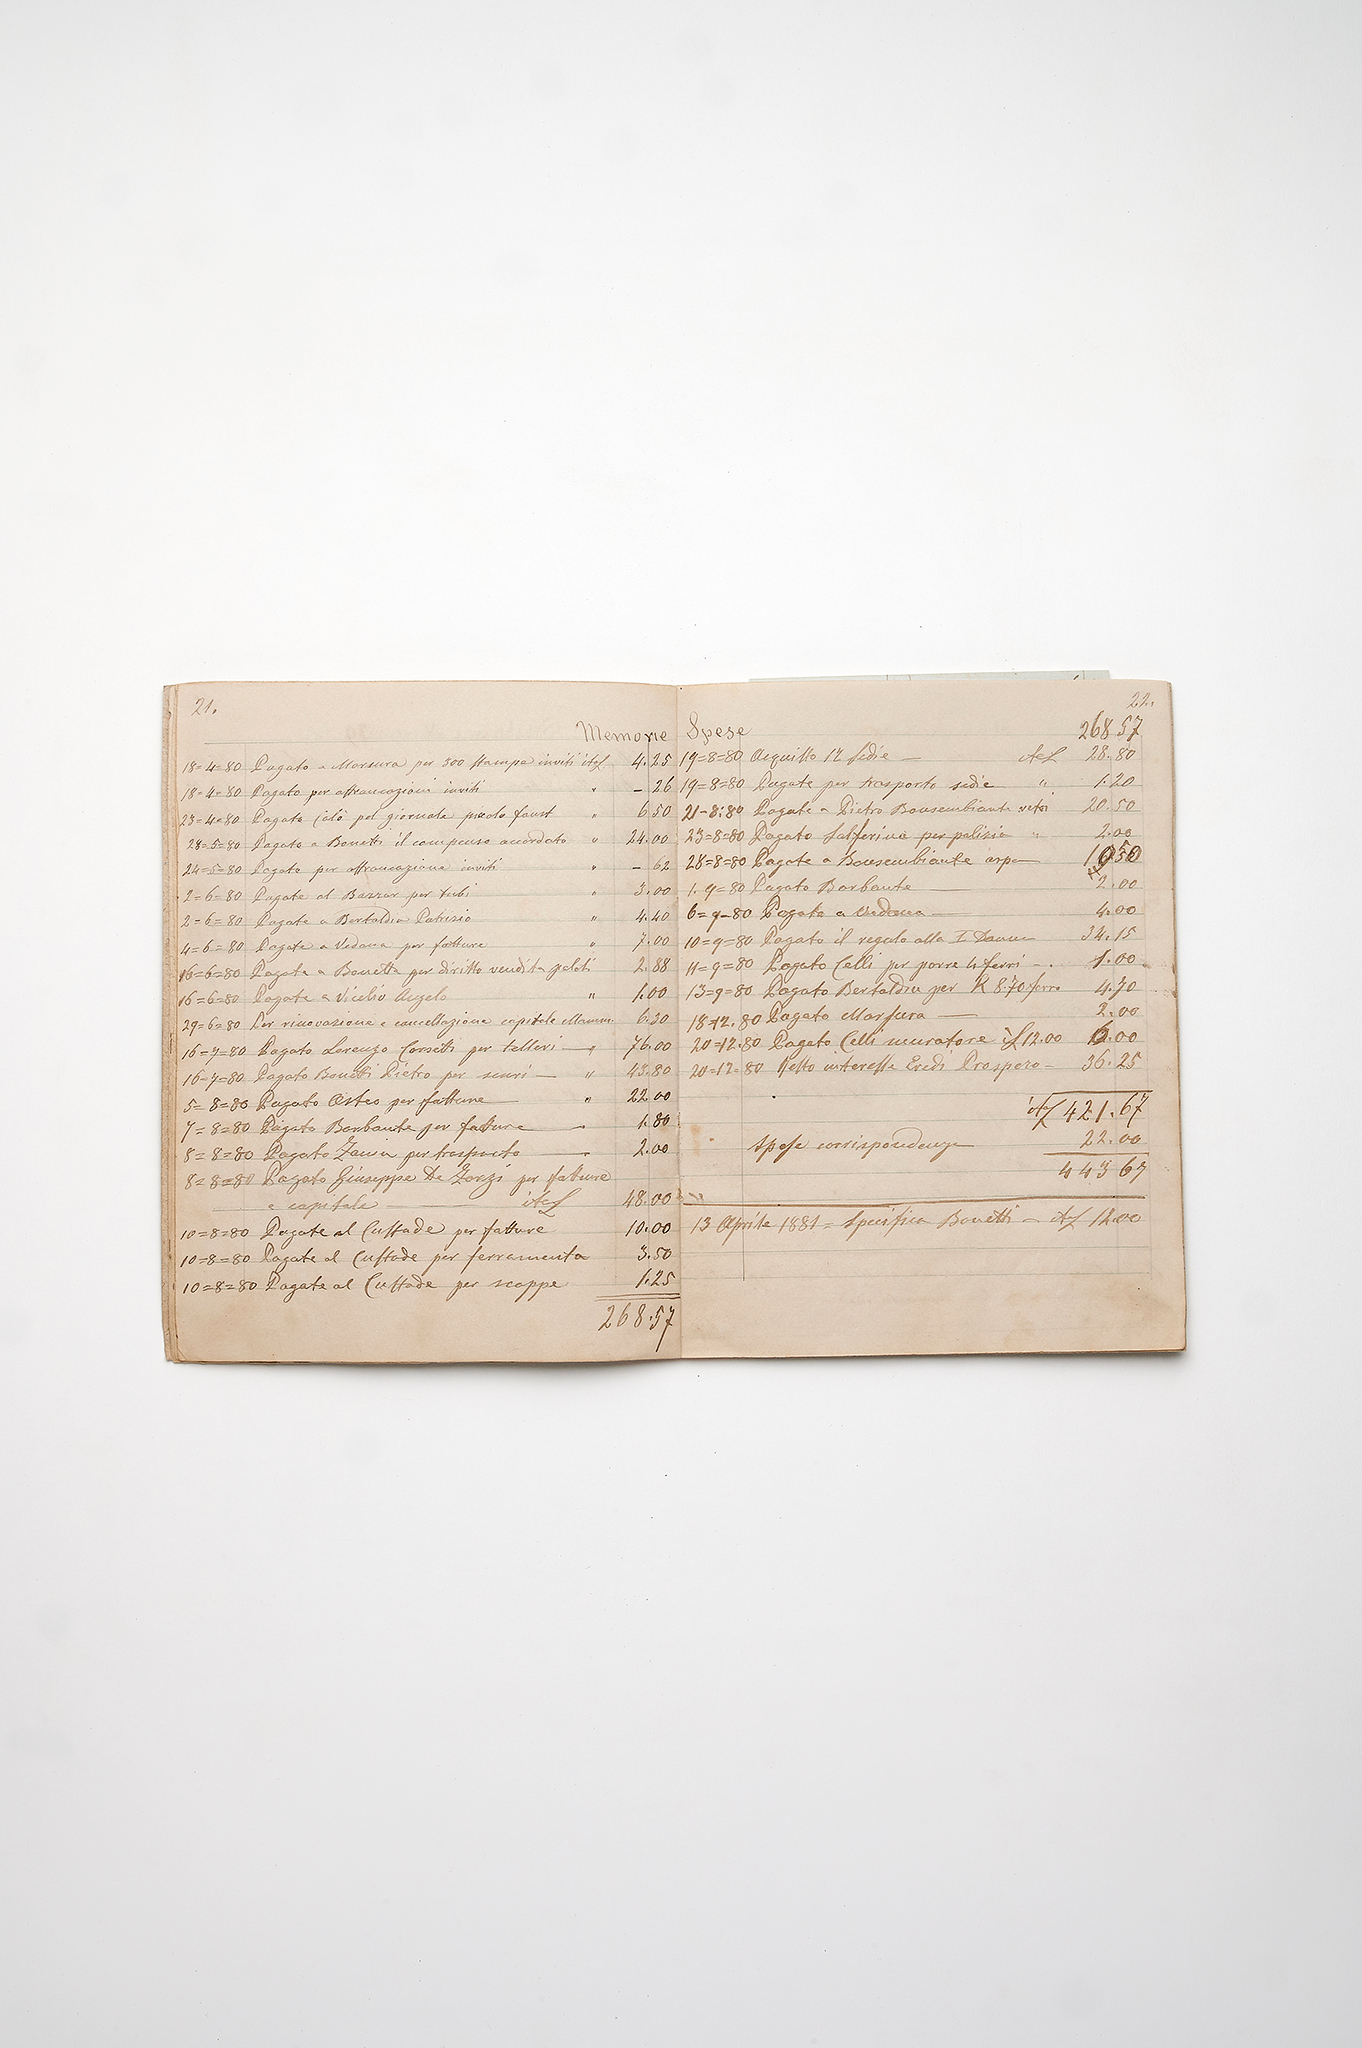 21.
Memorie
18=4=80 Pagato a Marsura per 300 stampe inviti it£ 4.25
18=4=80 Pagato per affrancazioni inviti " – 26
23=4=80 Pagato Colò pel giornale piccolo faust " 6 50
28=5=80 Pagato a Bonetti il compenso accordato " 24.00
24=5=80 Pagato per affrancazione inviti " – 62
2=6=80 Pagate al Bazzar per tubi " 3.00
2=6=80 Pagate a Bertaldia Patrizio " 4.40
4=6=80 Pagate a Vedana per fatture " 7.00
16=6=80 Pagate a Bonetta per diritto vendita 2.88
16=6=80 Pagate a Vicelio Angelo " 1.00
29=6=80 Per rinovazione e cancellazione capitale 6.30
16=7=80 Pagato Lorenzo Corsetti per telleri — " 76.00
16=7=80 Pagato Bonetti Pietro per scuri — " 43.80
5=8=80 Pagato Osteo per fatture — " 22.00
7=8=80 Pagato Barbante per fatture — " 1.80
8=8=80 Pagato Zaina per trasporto — " 2.00
8=8=80 Pagato Giuseppe De Zorzi per fatture
e capitale — it£ 48.00
10=8=80 Pagate al Custode per fatture 10.00
10=8=80 Pagate al Custode per ferramenta 3.50
10=8=80 Pagate al Custode per scoppe 1.25
268.57
22.
Spese 268 57
19=8=80 Acquisto 12 sedie — it£ 28.80
19=8=80 Pagate per trasporto sedie " 1.20
21=8=80 Pagate a Pietro Bonsembiante vetri 20.50
23=8=80 Pagato Salferina per polizia " 2.00
28=8=80 Pagate a Bonsembiante arpe — 1 50
1.9=80 Pagato Barbante — 2.00
6=9=80 Pagate a Vedana — 4.00
10=9=80 Pagato il regalo alla I Donna 34.15
11=9=80 Pagato Celli per porre 4 ferri — 1.00
13=9=80 Pagato Bertaldia per K 8.70 ferro 4.70
18=12.80 Pagato Marsura — 2.00
20=12.80 Pagato Celli muratore it£ 12.00 .00
20=12=80 Netto interesse Eredi Prospero — 36.25
it£ 421.67
Spese corrispondenze — 22.00
443 67
13 Aprile 1881 = Specifica Bonetti — it£ 12.00